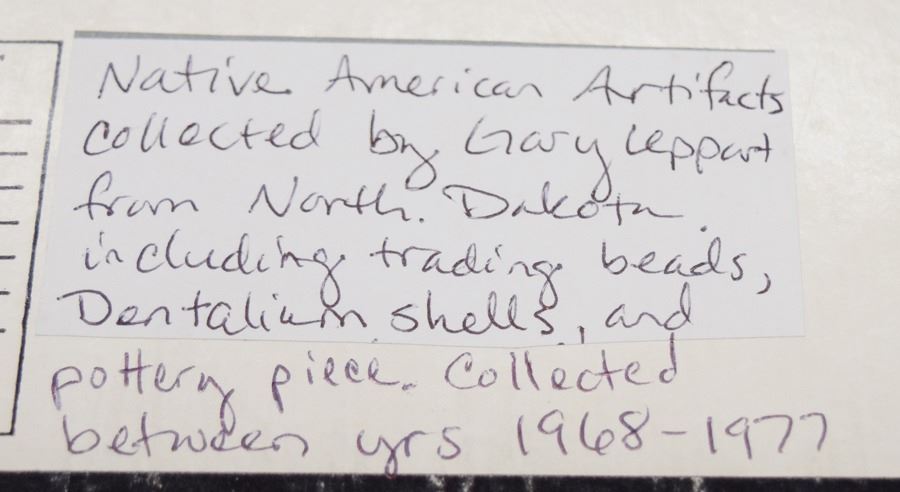 Native American Artifacts
collected by Gary Leppart
from North Dakota
including trading beads,
Dentalium shells, and
pottery piece. Collected
between yrs 1968-1977